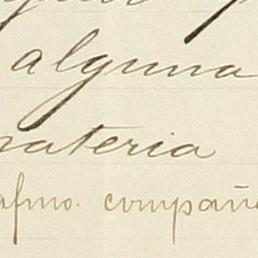 alguna
materia
afmo. compañe